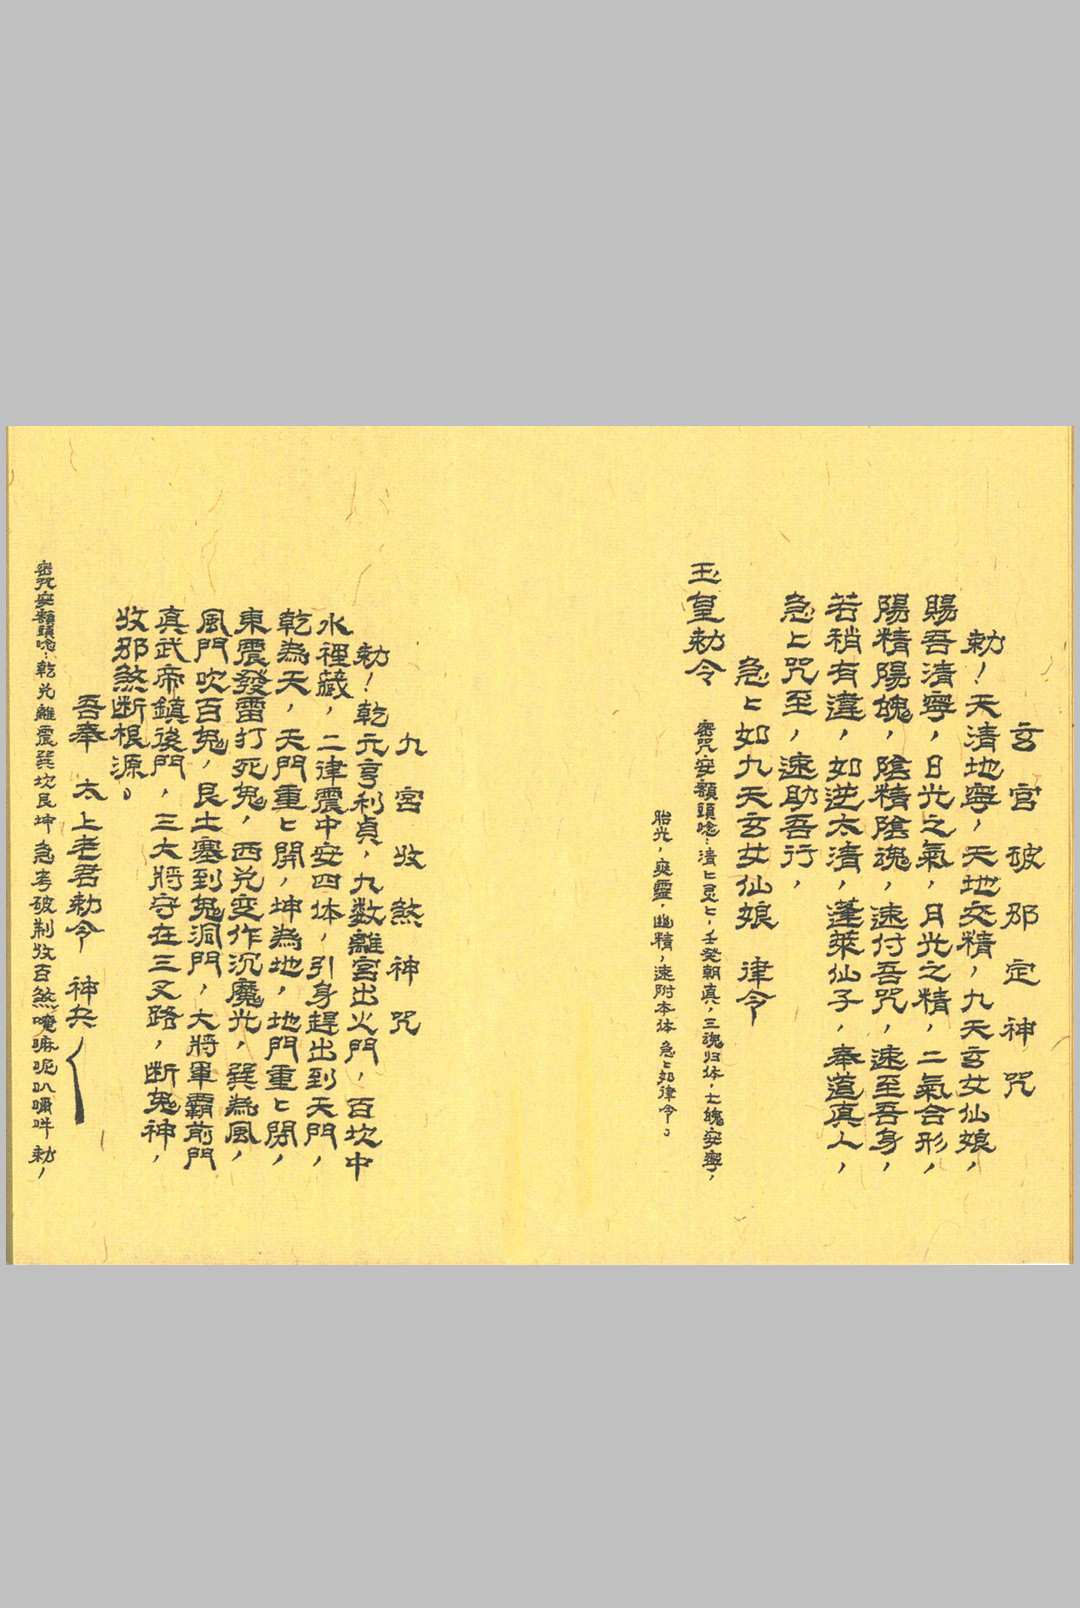 玄官破邪定神咒
勅！天清地寧，天地交精，九天玄女仙娘，
賜吾清寧，日光之氣，月光之精，二氣合形，
陽精陽魄，陰精陰魂，速付吾咒，速至吾身，
若稍有違，如逆太清，蓬萊仙子，奉道真人，
急ヒ咒至，速助吾行，
急ヒ如九天玄女仙娘　律令
玉皇勅令
密咒安額頭唸：清ヒ灵ヒ，壬癸朝真，三魂归体，七魄安寧，
胎光，爽靈，幽精，速附本体　急ヒ如律令。
九宮收煞神咒
勅！乾元亨利貞，九数離宮出火門，百坎中
水裡藏，二律震中安四体，引身趕出到天門，
乾為天，天門重ヒ開，坤為地，地門重ヒ閉，
東震發雷打死鬼，西兑变作沉魔光，巽為風，
風門吹百鬼，艮土塞到鬼洞門，大將軍霸前門
真武帝鎮後門，三大將守在三叉路，断鬼神，
收邪煞断根源。
吾奉　太上老君勅令　神兵
密咒安額頭唸：乾兑離震巽坎艮坤　急考破制收百煞唵嘛呢叭嘯吽　勅，